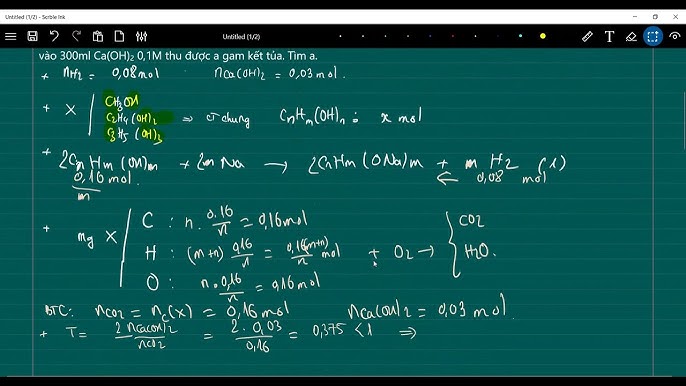 Untitled (1/2) - Scrble Ink
Untitled (1/2)
vào 300ml Ca(OH)₂ 0,1M thu được a gam kết tủa. Tìm a.
+ nH₂ = 0,08 mol nCa(OH)₂ = 0,03 mol.
+ X | CH₃OH
C₂H₄(OH)₂ ⇒ CT chung CnHm(OH)n : x mol
C₃H₅(OH)₃
+ 2CnHm(OH)m + 2m Na → 2CnHm(ONa)m + m H₂ (1)
0,16 mol ← 0,08 mol
m
+ mg X | C : n. 0.16/n = 0,16 mol
H : (m+n) 0,16/n = 0,16(m+n)/n mol + O₂ → { CO₂
H₂O.
O : n.0,16/n = 0,16 mol
BTC: nCO₂ = nC(X) = 0,16 mol nCa(OH)₂ = 0,03 mol.
+ T = 2nCa(OH)₂/nCO₂ = 2.0,03/0,16 = 0,375 < 1 ⇒